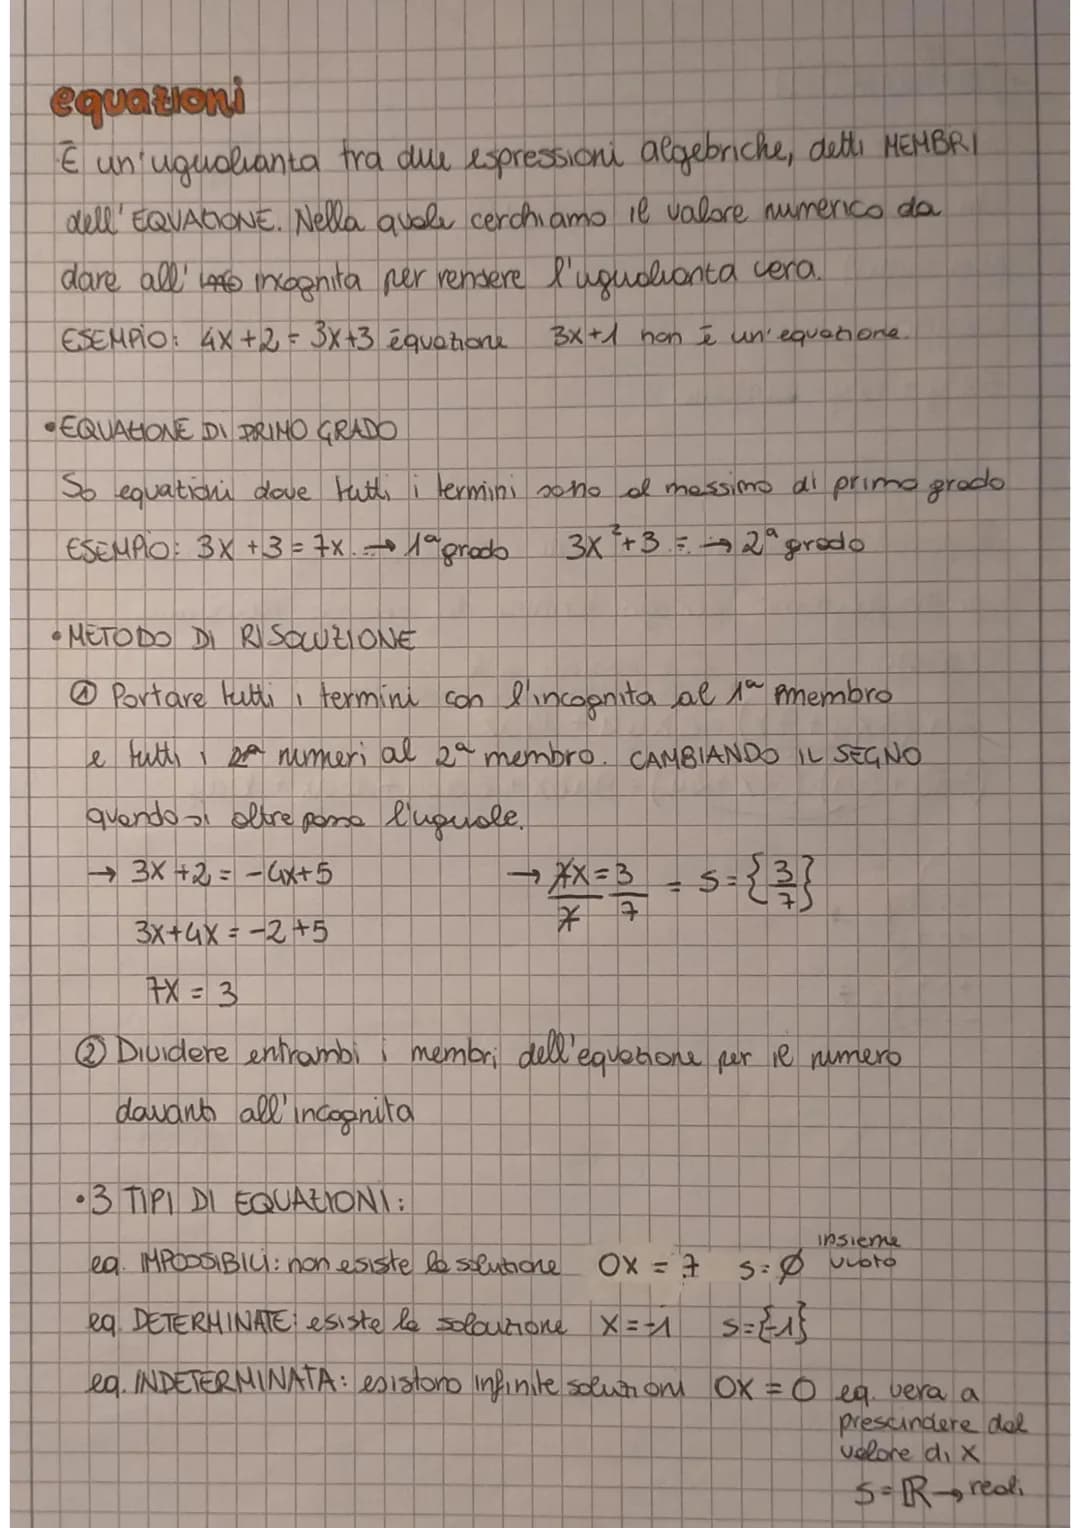 equazioni
È un'uguaglianza tra due espressioni algebriche, detti MEMBRI
dell'EQUAZIONE. Nella quale cerchiamo il valore numerico da
dare all' incognita per rendere l'uguaglianza vera.
ESEMPIO: 4x+2 = 3x+3 equazione 3x+1 non è un'equazione.
• EQUAZIONE DI PRIMO GRADO
So equazioni dove tutti i termini sono al massimo di primo grado
ESEMPIO: 3x+3=7x. → 1ª grado 3x²+3 = → 2ª grado
• METODO DI RISOLUZIONE
① Portare tutti i termini con l'incognita al 1ª membro
e tutti i numeri al 2ª membro. CAMBIANDO IL SEGNO
quando si oltre passa l'uguale.
→ 3x+2 = -4x+5 → 7x/7 = 3/7 = S={3/7}
3x+4x = -2+5
7x = 3
② Dividere entrambi i membri dell'equazione per il numero
davanti all'incognita
• 3 TIPI DI EQUAZIONI:
eq. IMPOSSIBILI: non esiste la soluzione 0x = 7 S=∅ insieme vuoto
eq. DETERMINATE: esiste la solouzione x=-1 S={-1}
eq. INDETERMINATA: esistono infinite soluzioni 0x = 0 eq. vera a
prescindere dal
valore di x
S=ℝ → reali